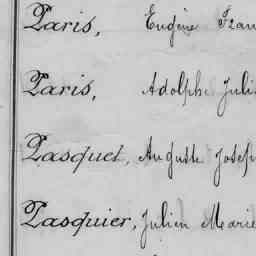 Paris, Eugène Fran
Paris, Adolphe Juli
Pasquet, Auguste Josep
Pasquier, Julien Marie